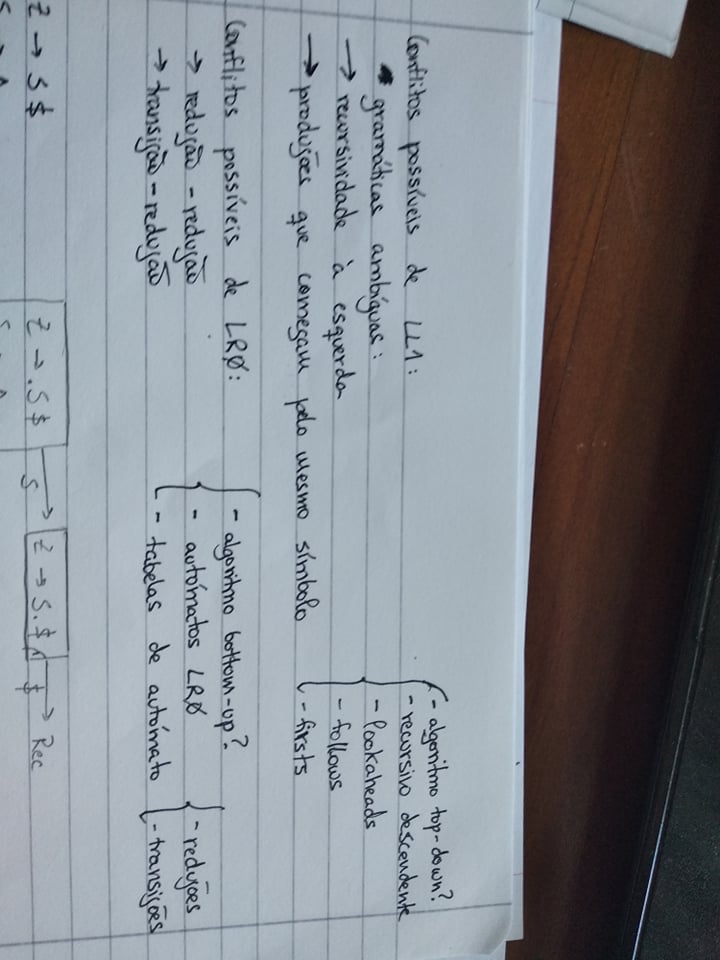 Conflitos possíveis de LL1:
gramáticas ambíguas:
→ recursividade à esquerda
→ produções que começam pelo mesmo símbolo
- algoritmo top-down?
- recursivo descendente
- lookaheads
- follows
- firsts
Conflitos possíveis de LRØ:
→ redução - redução
→ transição - redução
- algoritmo bottom-up?
- autómatos LRØ
- tabelas de autómato
- reduções
- transições
Z → S $
Z → .S $
S
Z → S. $
$
Rec